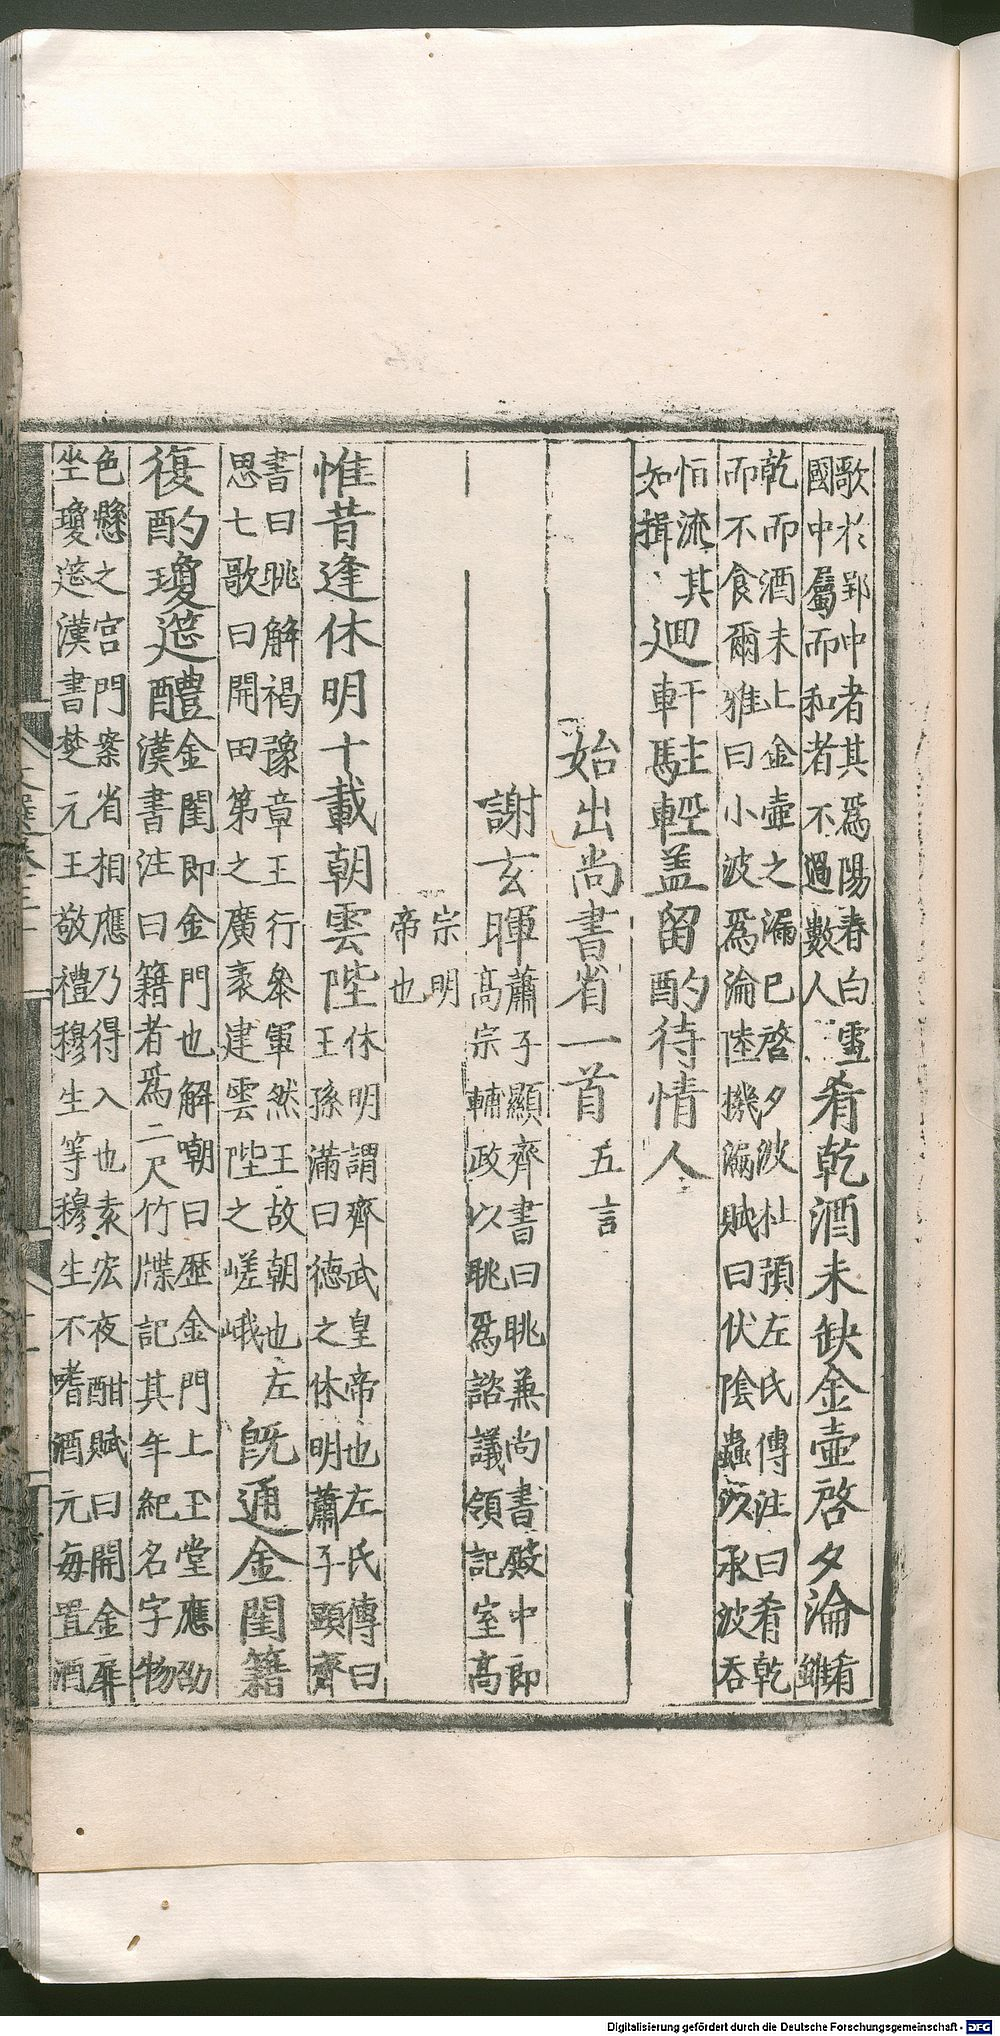 歌於郢中者其爲陽春白雪
國中屬而和者不過數人
肴乾酒未缺金壺啓夕淪
肴
雖
乾而酒未上金壺之漏已啓夕波杜預左氏傳注曰肴乾
而不食爾雅曰小波爲淪陸機漏賦曰伏陰蟲以承波吞
恒流其
如揖
迴軒駐輕盖留酌待情人
始出尚書省一首
五言
謝玄暉
蕭子顯齊書曰眺兼尚書殿中郎
高宗輔政以眺爲諮議領記室高
宗明
帝也
惟昔逢休明十載朝雲陛
休明謂齊武皇帝也左氏傳曰
王孫滿曰德之休明蕭子顯齊
書曰眺解褐豫章王行參軍然王故朝也左
思七歌曰開田第之廣袤建雲陛之嵯峨
既通金閨籍
復酌瓊筵醴
金閨即金門也解嘲曰歷金門上玉堂應劭
漢書注曰籍者爲二尺竹牒記其年紀名字物
色懸之宮門案省相應乃得入也袁宏夜酣賦曰開金扉
坐瓊筵漢書楚元王敬禮穆生等穆生不嗜酒元每置酒
Digitalisierung gefördert durch die Deutsche Forschungsgemeinschaft - DFG